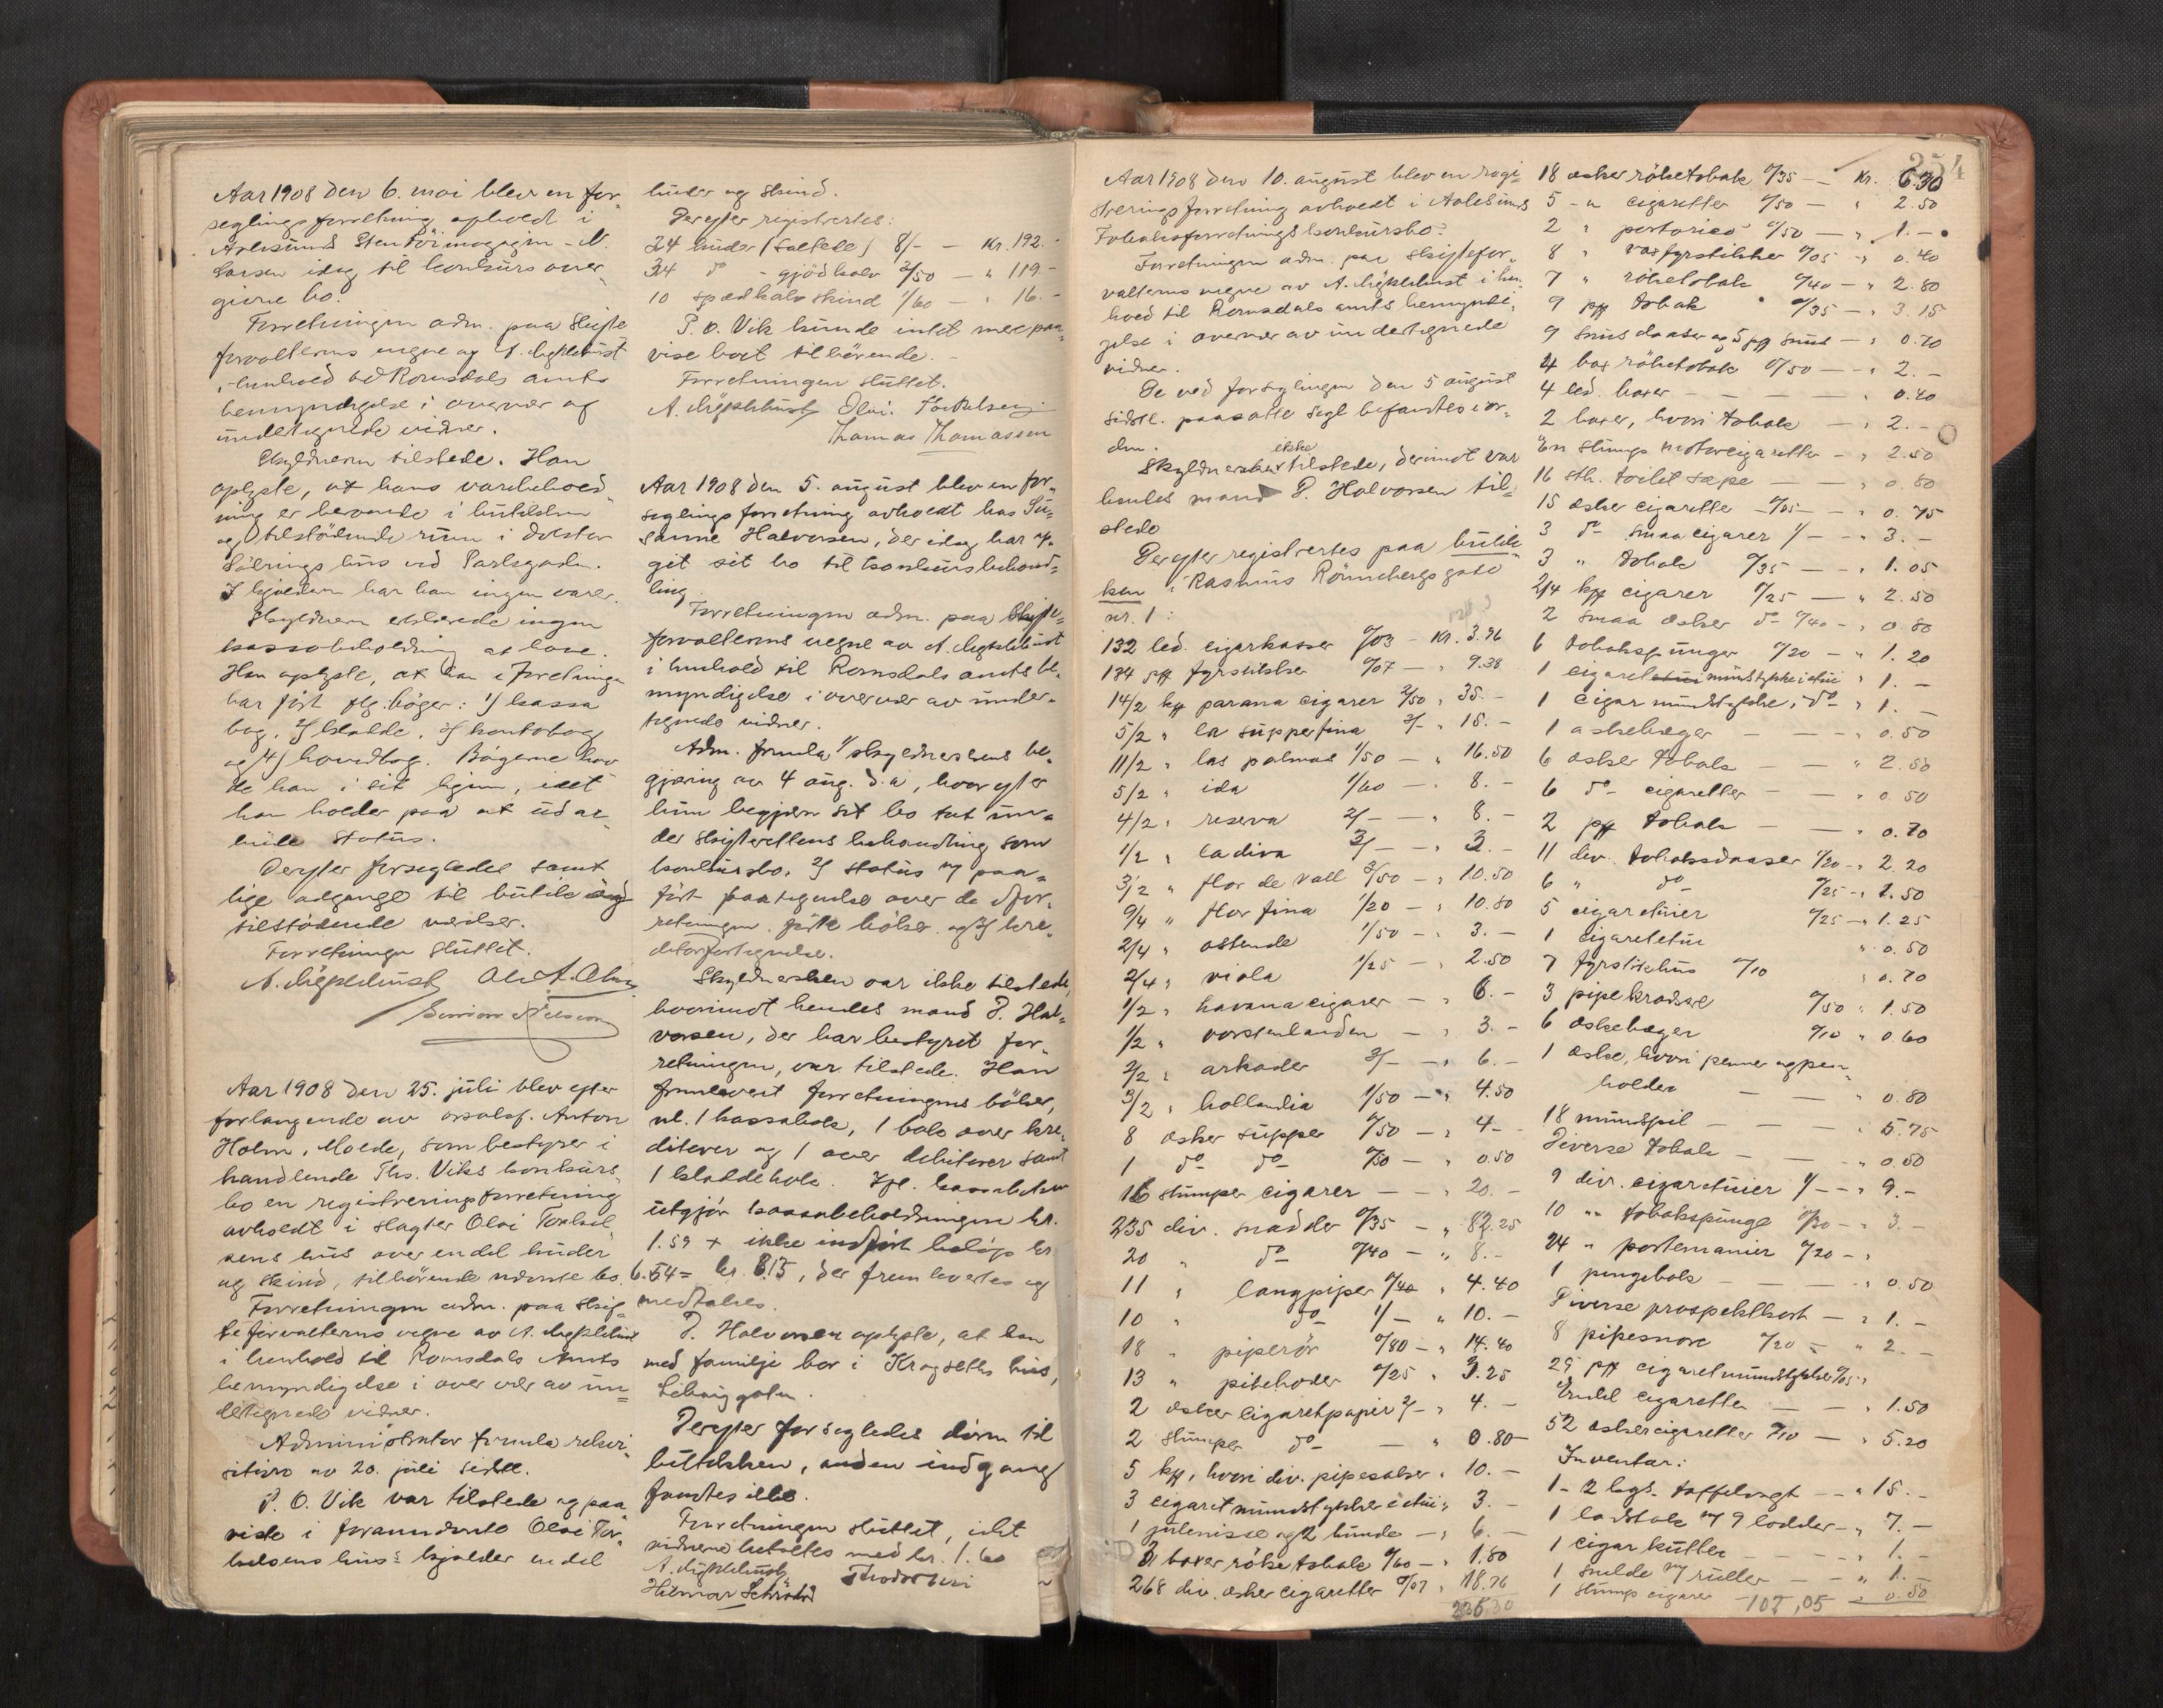 Aar 1908 den 6. mai blev en for-
seglingsforretning avholdt i
Aalesunds Stentöimagazin - N.
Larsen idag til konkurs over-
givne bo.
Forretningen adm. paa skifte
forvalterens vegne av A. Myklebust
i henhold til Romsdals amts
bemyndigelse i overvær af
undertegnede vidner.
Skyldneren tilstede. Han
oplyste, at hans varebehold-
ning er beroende i butikken
og tilstödende rum i doktor
hus ved Parkgaden.
I kjælderen har han ingen varer.
Skyldneren erklærede ingen
kassabeholdning at have.
Han oplyste, at han i forretningen
har fört flg. böger: 1) kassa
bog, 2) kladde, 3) kontobog
og 4) hovedbog. Bögerne hav
de han i sit hjem, idet
han holder paa at udar
beide status.
Derefter forsegledes samt
lige adgange til butik og
tilstödende værelser.
Forretningen sluttet.
A. Myklebust
Aar 1908 den 25. juli blev efter
forlangende av Anton
Holm, Molde, som bestyrer i
handlende Ths. Viks konkurs-
bo en registreringsforretning
avholdt i slagter Olai Torkil
sens hus over en del huder
og skind, tilhörende nævnte bo.
Forretningen adm. paa skif-
teforvalterens vegne av A. Myklebust
i henhold til Romsdals Amts
bemyndigelse i overvær av un-
dertegnede vidner.
Administrator fremla rekvi-
sition av 20. juli sidstl.
P. O. Vik var tilstede og paa
viste i forannævnte Olai Tor
kelsens hus's kjælder en del
huder og skind.
Derefter registrertes:
24 huder (saltede) 8/- - Kr. 192.-
34 do - gjödkalv 3/50 - " 119.-
10 spædkalvskind 1/60 - " 16.-
P. O. Vik kunde intet mer paa
vise boet tilhörende.
Forretningen sluttet.
A. Myklebust Olai Torkelsen
Thomas Thomassen
Aar 1908 den 5. august blev en for-
seglingsforretning avholdt hos Su-
sanne Halvorsen, der idag har op-
git sit bo til konkursbehand-
ling.
Forretningen adm. paa skifte-
forvalterens vegne av A. Myklebust
i henhold til Romsdals amts be-
myndigelse i overvær av under-
tegnede vidner.
Adm. fremla 1/ skyldnerskens be-
gjæring av 4 aug. d.a, hvorefter
hun begjærer sit bo tat un-
der skifterettens behandling som
konkursbo, 2/ status m/ paa-
fört fortegnelse over de i for-
retningen förte böker og 3/ kre-
ditorfortegnelse.
Skyldnersken var ikke tilstede,
hvorimot hendes mand P. Hal-
vorsen, der har bestyret for-
retningen, var tilstede. Han
fremleverte forretningens böker,
nl. 1 kassabok, 1 bok over kre-
ditorer og 1 over debitorer samt
1 kladdebok. Ifl. kassaboken
utgjör kassabeholdningen kr.
1.59 + ikke indfört belöp kr
6.54 = kr. 8.13, der fremlevertes og
medtakes.
P. Halvorsen oplyste, at han
med familje bor i Kragseths hus,
Derefter forsegledes dören til
butikken, anden indgang
fandtes ikke.
Forretningen sluttet, idet
vidnerne betaltes med kr. 1.60
A. Myklebust
Hilmar Schröder
254
Aar 1908 den 10. august blev en regi-
streringsforretning avholdt i Aalesunds
Tobaksforretnings konkursbo.
Forretningen adm. paa skiftefor-
valterens vegne av A. Myklebust i hen-
hold til Romsdals amts bemyndi-
gelse i overvær av undertegnede
vidner.
De ved forseglingen den 5 august
sidstl. paasatte segl befandtes i or-
den.
Skyldnersken ikke tilstede, derimot var
hendes mand P. Halvorsen til-
stede
Derefter registrertes paa butik-
ken i Rasmus Rönnebergs gate
nr. 1:
132 led. cigarkasser 0/03 - Kr. 3.96
134 pk fyrstikker 0/07 - " 9.38
14/2 ks parana cigarer 2/50 " 35.-
5/2 " la suppertina 3/- " 15.-
11/2 " las palmas 1/50 - " 16.50
5/2 " ida 1/60 - " 8.-
4/2 " reserva 2/- - " 8.-
1/2 " la diva 3/- - " 3.-
3/2 " flor de vall 3/50 - " 10.50
9/4 " flor fina 1/20 - " 10.80
2/4 " ostende 1/50 - " 3.-
2/4 " viola 1/25 - " 2.50
1/2 " havana cigarer - " 6.-
1/2 " vorstenlanden - " 3.-
2/2 " arkader 3/- - " 6.-
3/2 " hollandia 1/50 - " 4.50
8 esker supper 0/50 - " 4.-
1 do do 0/50 - " 0.50
16 stumper cigarer - - " 20.-
235 div. snadder 0/35 - " 82.25
20 " do 0/40 - " 8.-
11 " langpiper 0/40 " 4.40
10 " do 1/- " 10.-
18 " piperör 0/80 - " 14.40
13 " pibehoder 0/25 " 3.25
2 esker cigaretpapir 2/- " 4.-
2 stumper do - " 0.80
5 ks, hvori div. pipesaker " 10.-
3 cigaretmundstykker i etui " 3.-
1 julenisse og 2 hunde - " 6.-
3 boxer röketobak 0/60 - " 1.80
268 div. esker cigaretter 0/07 " 18.76
18 esker röketobak 0/35 - Kr. 6.30
5 - " cigaretter 0/50 - " 2.50
2 " portorico 0/50 - " 1.-
8 " voxfyrstikker 0/05 - " 0.40
7 " röketobak 0/40 - " 2.80
9 pk tobak 0/35 - " 3.15
9 snusdaaser og 5 pk snus - " 0.70
4 box röketobak 0/50 - " 2.-
4 led. boxer - - - " 0.40
2 boxer, hvori tobak - " 2.-
En stump motorcigaretter - " 2.50
16 stk. toilet sæpe - - " 0.80
15 esker cigaretter 0/05 - " 0.75
3 do smaa cigarer 1/- - " 3.-
3 " tobak 0/35 - " 1.05
2/4 ks cigarer 1/25 - " 2.50
2 smaa esker do 0/40 - " 0.80
6 tobakspunger 0/20 - " 1.20
1 cigaretmundstykke i etui " 1.-
1 cigarmundstykke i do " 1.-
1 askebæger - - - " 0.50
6 esker tobak - - " 2.50
6 do cigaretter - - " 0.50
2 pk tobak - - " 0.70
11 div. tobaksdaaser 0/20 - " 2.20
6 " do 0/25 - " 1.50
5 cigaretuier 0/25 - " 1.25
1 cigaretetui " 0.50
7 fyrstikhus 0/10 " 0.70
3 pipekradsere 0/50 " 1.50
6 askebæger 0/10 " 0.60
1 eske, hvori penner og pen-
holder - - " 0.80
18 mundspil - - " 5.75
Diverse tobak - - " 0.50
9 div. cigaretuier 1/- - " 9.-
10 " tobakspunge 0/30 - " 3.-
24 " portemonaier 0/20 - "
1 pengebok - - - " 0.50
Diverse prospektkort - " 1.-
8 pipesnore 0/20 - " 2.-
25 pk cigaretmundstykker 0/05 "
Endel cigaretter - - " 1.50
52 esker cigaretter 0/10 - " 5.20
Inventar:
1 - 2 kgs. taffelvegt - - " 15.-
1 lodstok m/ 9 lodder - " 7.-
1 cigarkutter - - - " 1.-
1 snelde m/ ruller - - " 1.-
1 stump cigarer " 0.50
107,05